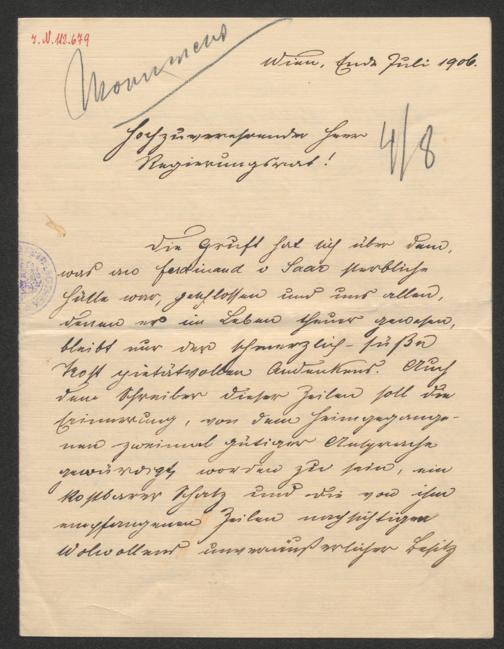 I.N. 112.679
Monument
Wien, Ende Juli 1906.
Hochzuverehrender Herr
Regierungsrat!
4/8
Die Gruft hat sich über dem,
was an Ferdinand v Saar sterbliche
Hülle war, geschlossen und uns allen,
denen er im Leben theuer gewesen,
bleibt nur der schmerzlich-süße
Trost pietätvollen Andenkens. Auch
dem Schreiber dieser Zeilen soll die
Erinnerung, von dem Heimgegange-
nen zweimal gütiger Ansprache
gewürdigt worden zu sein, ein
kostbarer Schatz und die von ihm
empfangenen Zeilen nachsichtigen
Wolwollens unveräußerlicher Besitz